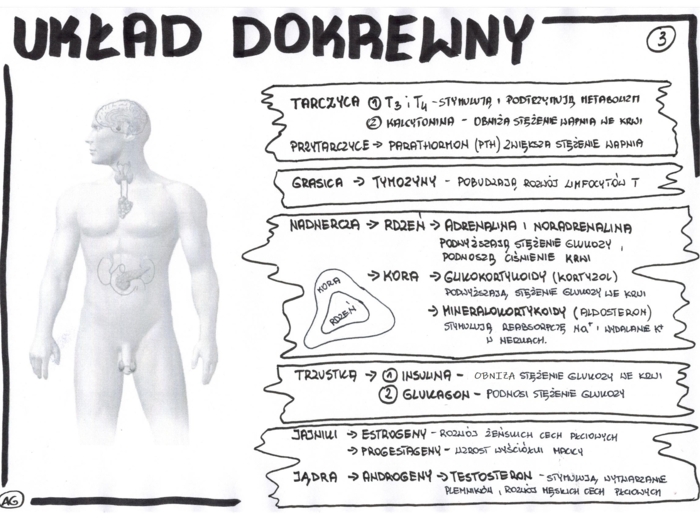 UKŁAD DOKREWNY
3
TARCZYCA ① T3 i T4 - STYMULUJĄ I PODTRZYMUJĄ METABOLIZM
② KALCYTONINA - OBNIŻA STĘŻENIE WAPNIA WE KRWI
PRZYTARCZYCE → PARATHORMON (PTH) ZWIĘKSZA STĘŻENIE WAPNIA
GRASICA → TYMOZYNY - POBUDZAJĄ ROZWÓJ LIMFOCYTÓW T
NADNERCZA → RDZEŃ → ADRENALINA I NORADRENALINA
PODWYŻSZAJĄ STĘŻENIE GLUKOZY,
PODNOSZĄ CIŚNIENIE KRWI
→ KORA → GLIKOKORTYKOIDY (KORTYZOL)
PODWYŻSZAJĄ STĘŻENIE GLUKOZY WE KRWI
→ MINERALOKORTYKOIDY (ALDOSTERON)
STYMULUJĄ REABSORPCJĘ Na+ i WYDALANIE K+
W NERKACH.
KORA
RDZEŃ
TRZUSTKA → ① INSULINA - OBNIŻA STĘŻENIE GLUKOZY WE KRWI
② GLUKAGON - PODNOSI STĘŻENIE GLUKOZY
JAJNIKI → ESTROGENY - ROZWÓJ ŻEŃSKICH CECH PŁCIOWYCH
→ PROGESTAGENY - WZROST WYŚCIÓŁKI MACICY
JĄDRA → ANDROGENY → TESTOSTERON - STYMULUJĄ WYTWARZANIE
PLEMNIKÓW, ROZWÓJ MĘSKICH CECH PŁCIOWYCH
AG